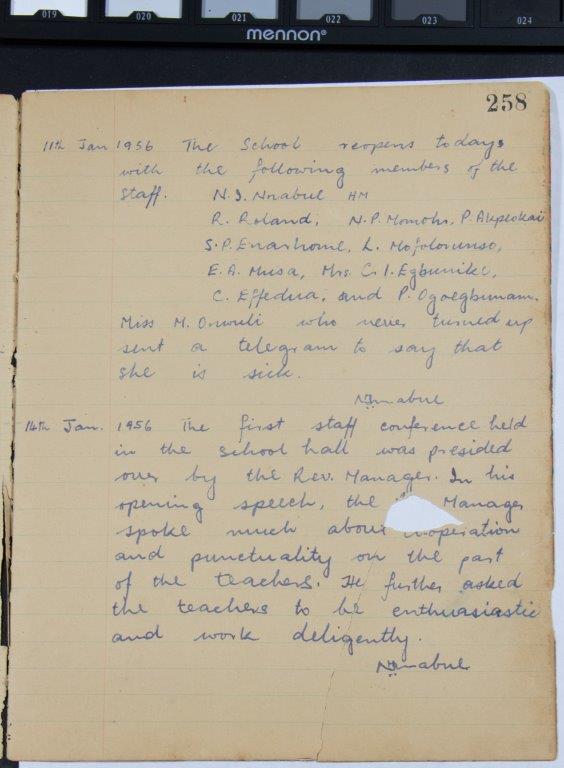 019 020 021 022 023 024
mennon®
258
11th Jan 1956 The School reopens todays
with the following members of the
staff. N.J. Nnabue HM
R. Roland, N.P. Momohs, P. Akpeokai
S.P. Enarhome, L. Mofolorunso,
E.A. Musa, Mrs. C.I. Egbunike,
C. Effedua, and P. Ogoegbunam.
Miss M. Onwuli who never turned up
sent a telegram to say that
she is sick.
Nnabue
14th Jan. 1956 The first staff conference held
in the school hall was presided
over by the Rev. Manager. In his
opening speech, the Manager
spoke much about cooperation
and punctuality on the part
of the teachers. He further asked
the teachers to be enthuasiastic
and work deligently.
Nnabue